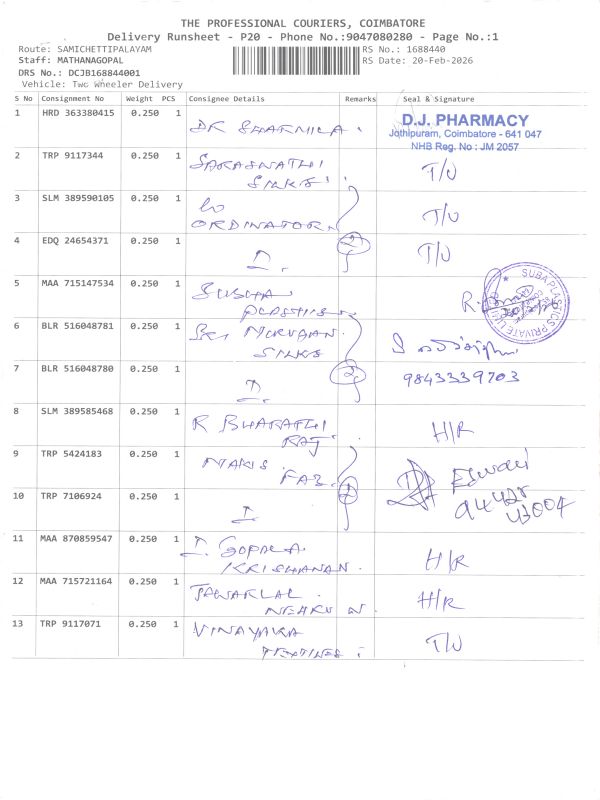 THE PROFESSIONAL COURIERS, COIMBATORE
Delivery Runsheet - P20 - Phone No.:9047080280 - Page No.:1
Route: SAMICHETTIPALAYAM RS No.: 1688440
Staff: MATHANAGOPAL RS Date: 20-Feb-2026
DRS No.: DCJB168844001
Vehicle: Two Wheeler Delivery
S No Consignment No Weight PCS Consignee Details Remarks Seal & Signature
1 HRD 363380415 0.250 1 DR SHARMILA. D.J. PHARMACY
Jothipuram, Coimbatore - 641 047
NHB Reg. No : JM 2057
2 TRP 9117344 0.250 1 SARASWATHI T/U
SILKS.
3 SLM 389590105 0.250 1 CO T/U
ORDINATOR
4 EDQ 24654371 0.250 1 I. 2 T/U
5 MAA 715147534 0.250 1 SUBHA R.
PLASTICS. SUBA PLASTICS PRIVATE LIMITED
6 BLR 516048781 0.250 1 SRI NIRVAAN
SILKS
7 BLR 516048780 0.250 1 I. 2 9843339703
8 SLM 389585468 0.250 1 R BHARATHI H/R
RAJ
9 TRP 5424183 0.250 1 NAKIS Eswari
FAB.
10 TRP 7106924 0.250 1 I 2
11 MAA 870859547 0.250 1 I. GOPALA H/R
KRISHANAN.
12 MAA 715721164 0.250 1 JAWARLAL H/R
NEHRU N.
13 TRP 9117071 0.250 1 VINAYAKA T/U
TEXTILES.